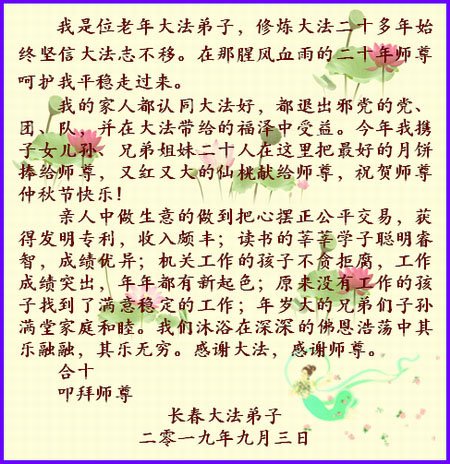 我是位老年大法弟子，修炼大法二十多年始
终坚信大法志不移。在那腥风血雨的二十年师尊
呵护我平稳走过来。
我的家人都认同大法好，都退出邪党的党、
团、队，并在大法带给的福泽中受益。今年我携
子女儿孙、兄弟姐妹二十人在这里把最好的月饼
捧给师尊，又红又大的仙桃献给师尊，祝贺师尊
仲秋节快乐！
亲人中做生意的做到把心摆正公平交易，获
得发明专利，收入颇丰；读书的莘莘学子聪明睿
智，成绩优异；机关工作的孩子不贪拒腐，工作
成绩突出，年年都有新起色；原来没有工作的孩
子找到了满意稳定的工作；年岁大的兄弟们子孙
满堂家庭和睦。我们沐浴在深深的佛恩浩荡中其
乐融融，其乐无穷。感谢大法，感谢师尊。
合十
叩拜师尊
长春大法弟子
二零一九年九月三日